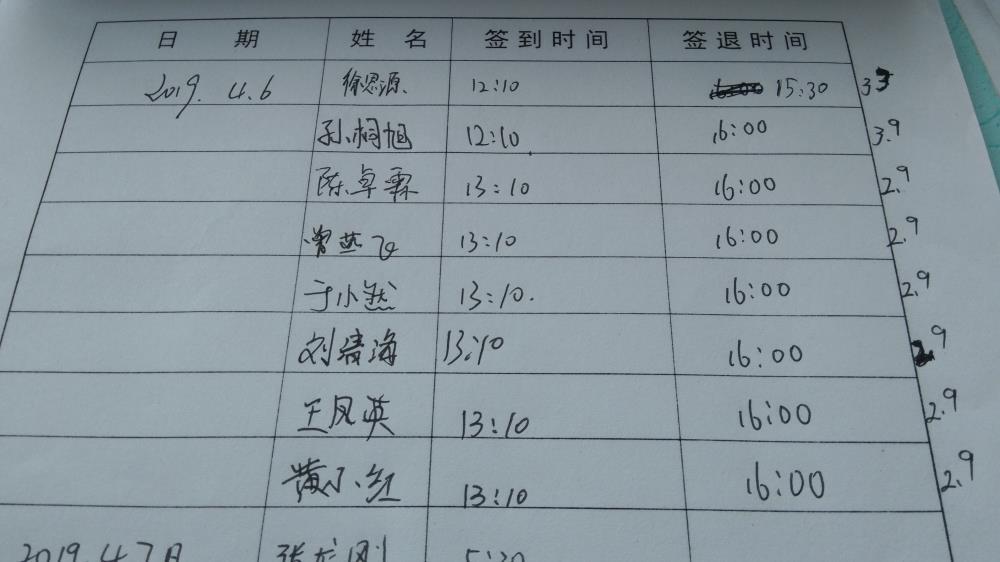 日 期 姓 名 签到时间 签退时间
2019. 4.6 徐思源 12:10 15:30 33
孙桐旭 12:10 16:00 3.9
陈卓霖 13:10 16:00 2.9
曾燕飞 13:10 16:00 2.9
于小然 13:10. 16:00 2.9
刘清海 13:10 16:00 2.9
王凤英 13:10 16:00 2.9
黄小红 13:10 16:00 2.9
2019.4.7日 张龙刚